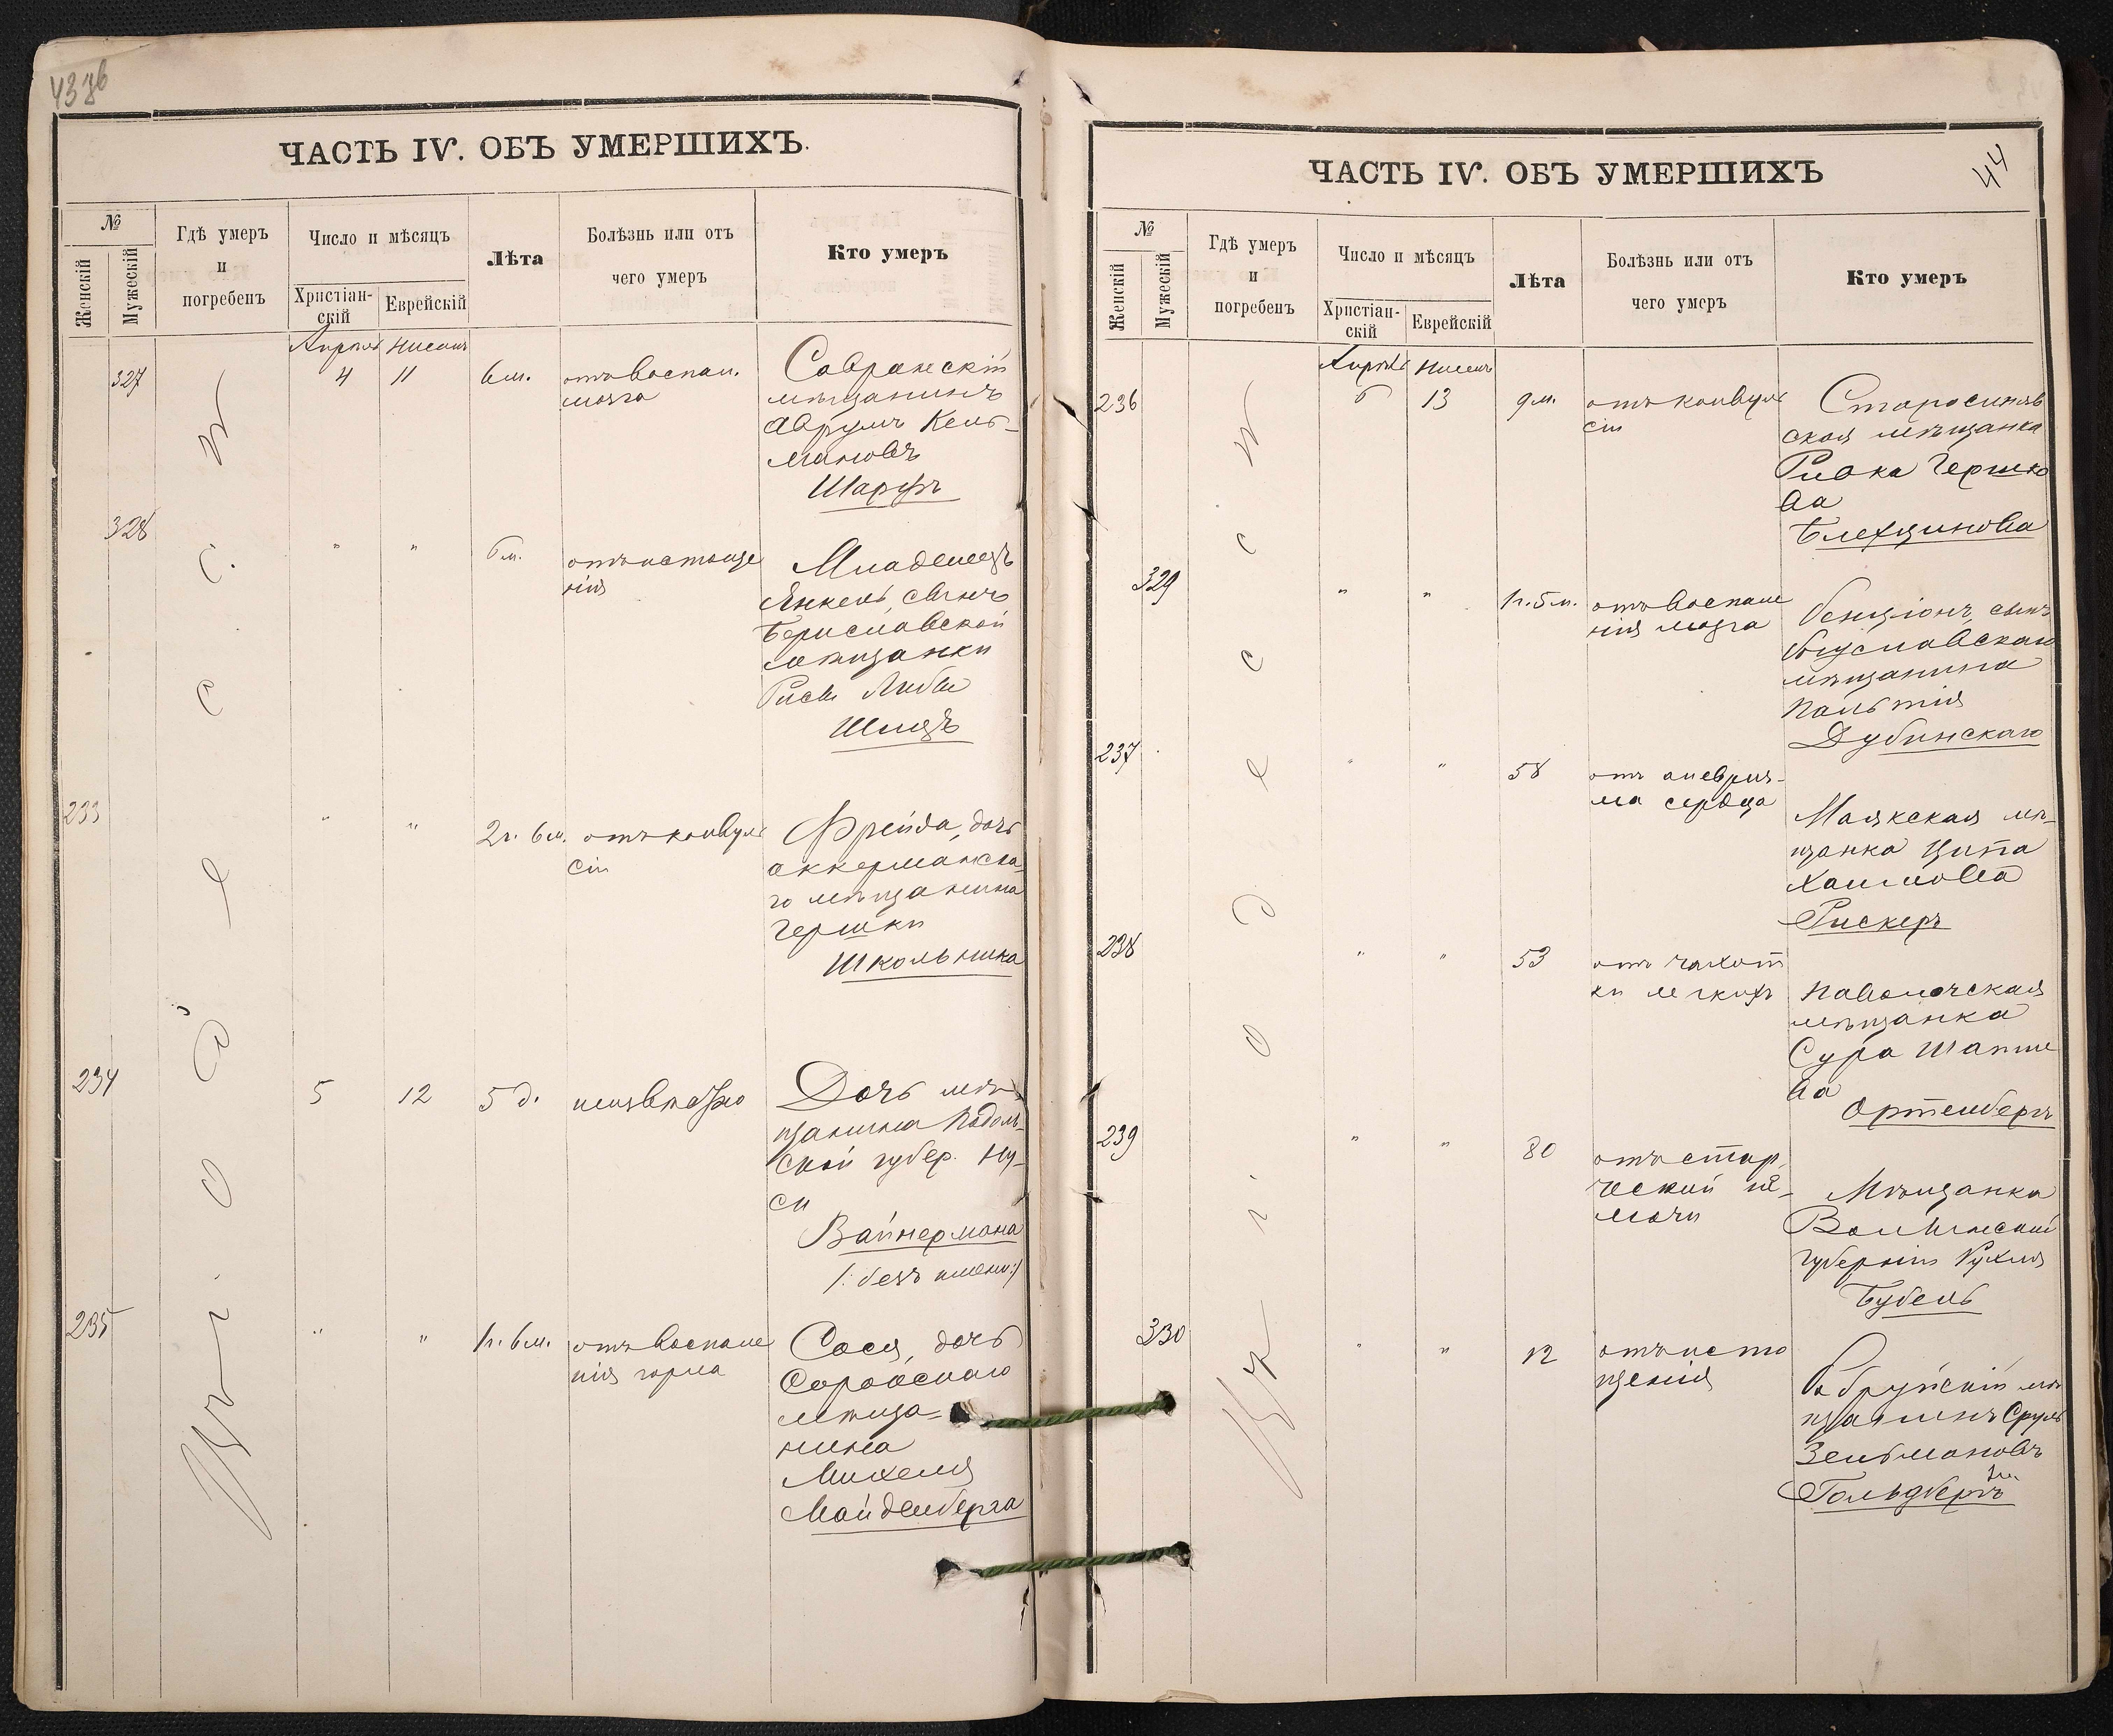 43
ЧАСТЬ IV. ОБЪ УМЕРШИХЪ.
№
Женскій
Мужескій
Гдѣ умеръ
и
погребенъ
Число и мѣсяцъ
Христіан-
скій
Еврейскій
Лѣта
Болѣзнь или отъ
чего умеръ
Кто умеръ
въ г. Одессѣ
Апрѣль Нисанъ
327 4 11 6 м. отъ воспал.
мозга
Савранскій
мѣщанинъ
Аврумъ Кель-
мановъ
328 " " отъ истоще
нія
Младенецъ
Янкель, сынъ
Бериславской
мѣщанки
233 " " 2 г. 6 м. отъ конвуль
сіи
Фрейда, дочь
аккерманска
го мѣщанина
Гершки
Школьника
234 5 12 5 д. неизвѣстно
Дочь мѣ
щанина Подоль-
ской губер. Ну-
си
Вайнермана
/: безъ имени :/
235 " " 1 г. 6 м. отъ воспале
нія горла
Сося, дочь
Сорокскаго
мѣща-
нина
Михеля
Майденберга
44
ЧАСТЬ IV. ОБЪ УМЕРШИХЪ
№
Женскій
Мужескій
Гдѣ умеръ
и
погребенъ
Число и мѣсяцъ
Христіан-
скій
Еврейскій
Лѣта
Болѣзнь или отъ
чего умеръ
Кто умеръ
Апрѣль Нисанъ
236 6 13 9 м. отъ конвуль
сіи
Старосиняв
ская мѣщанка
Ривка Гершко
ва
329 " " 1 г. 5 м. отъ воспале
нія мозга
Бенціонъ, сынъ
мѣщанина
Дубинскаго
237 " " 58 отъ аневриз-
ма сердца
Маякская мѣ-
щанка Ципа
Хаимова
Рискеръ
238 " " 53 отъ чахот
ки легкихъ
Паволочская
мѣщанка
Сура
ва
Ортенбергъ
239 " " 80 отъ стар
ческой не-
мочи
Мѣщанка
Волынской
губерніи Рухля
Бубель
330 " " 12 отъ исто
щенія
Бобруйскій мѣ
щанинъ Сруль
Зельмановъ
Гольдбергъ